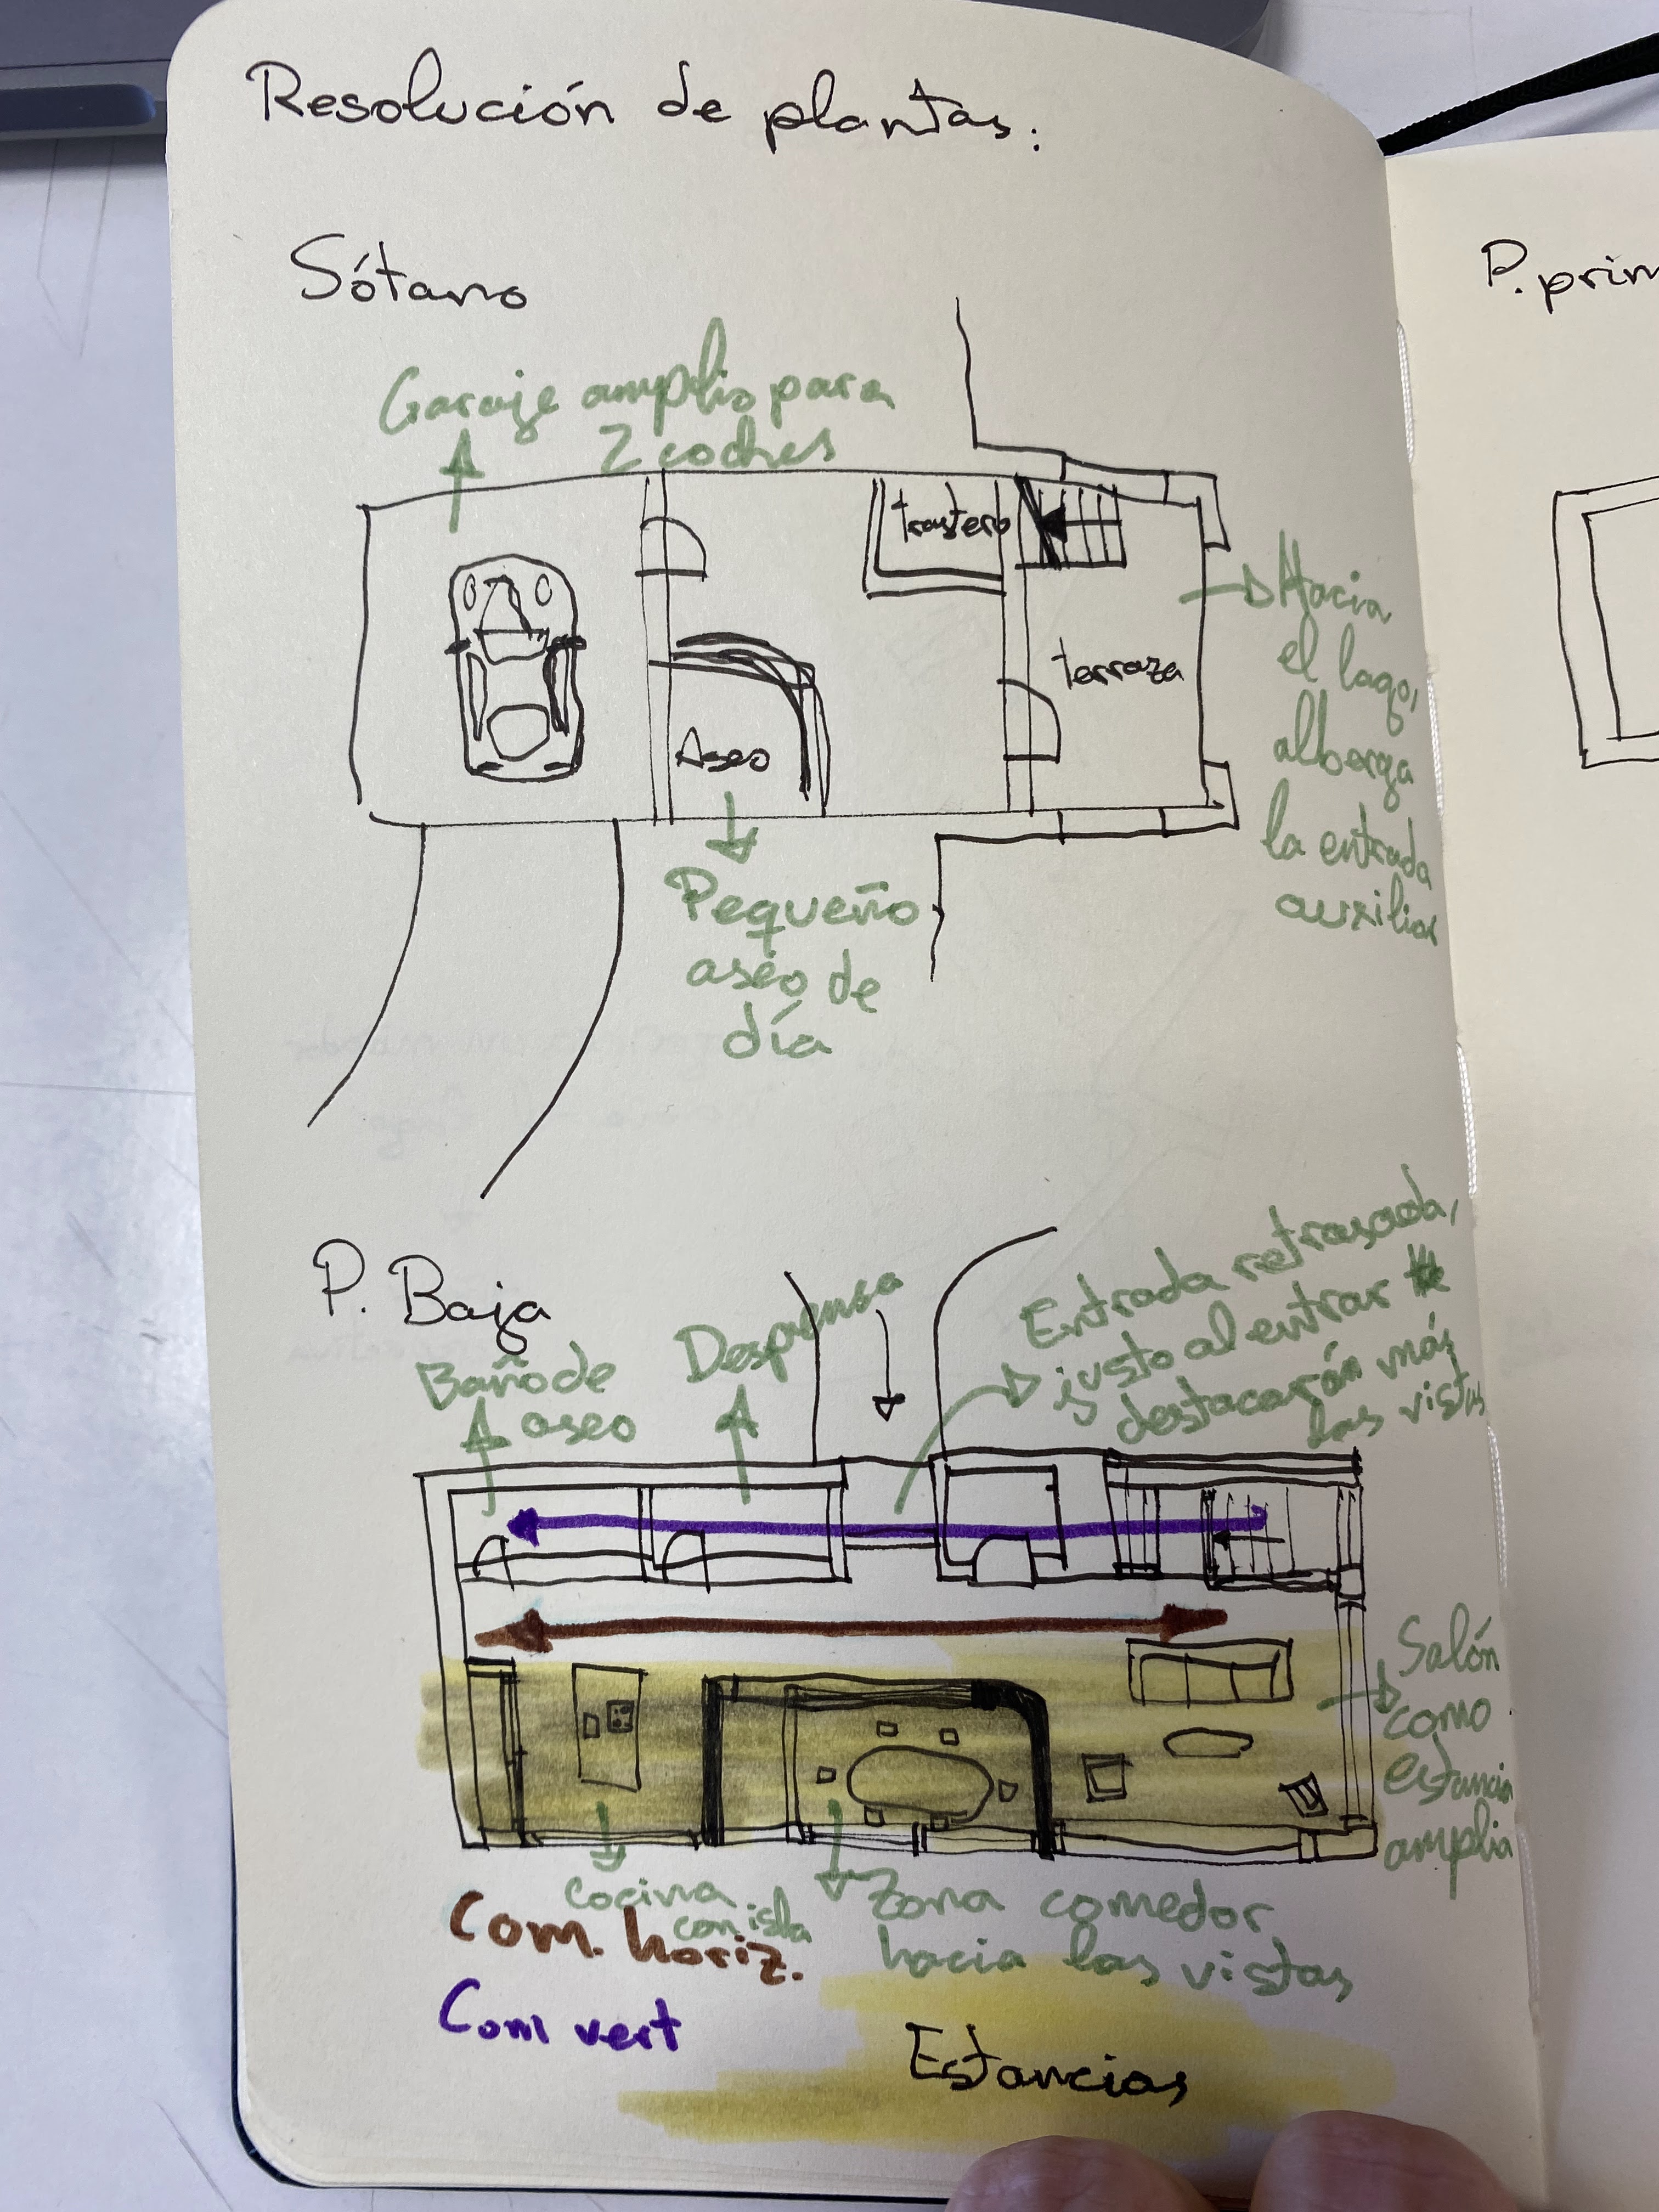 Resolución de plantas:
Sótano
P. prim
Garaje amplio para
2 coches
trastero
terraza
Aseo
Hacia
el lago,
alberga
la entrada
auxiliar
Pequeño
aseo de
día
P. Baja
Baño de
aseo
Despensa
Entrada retrasada,
justo al entrar
destacarán más
las vistas
Salón
como
estancia
amplia
cocina
con isla
Zona comedor
hacia las vistas
Com. horiz.
Com vert
Estancias